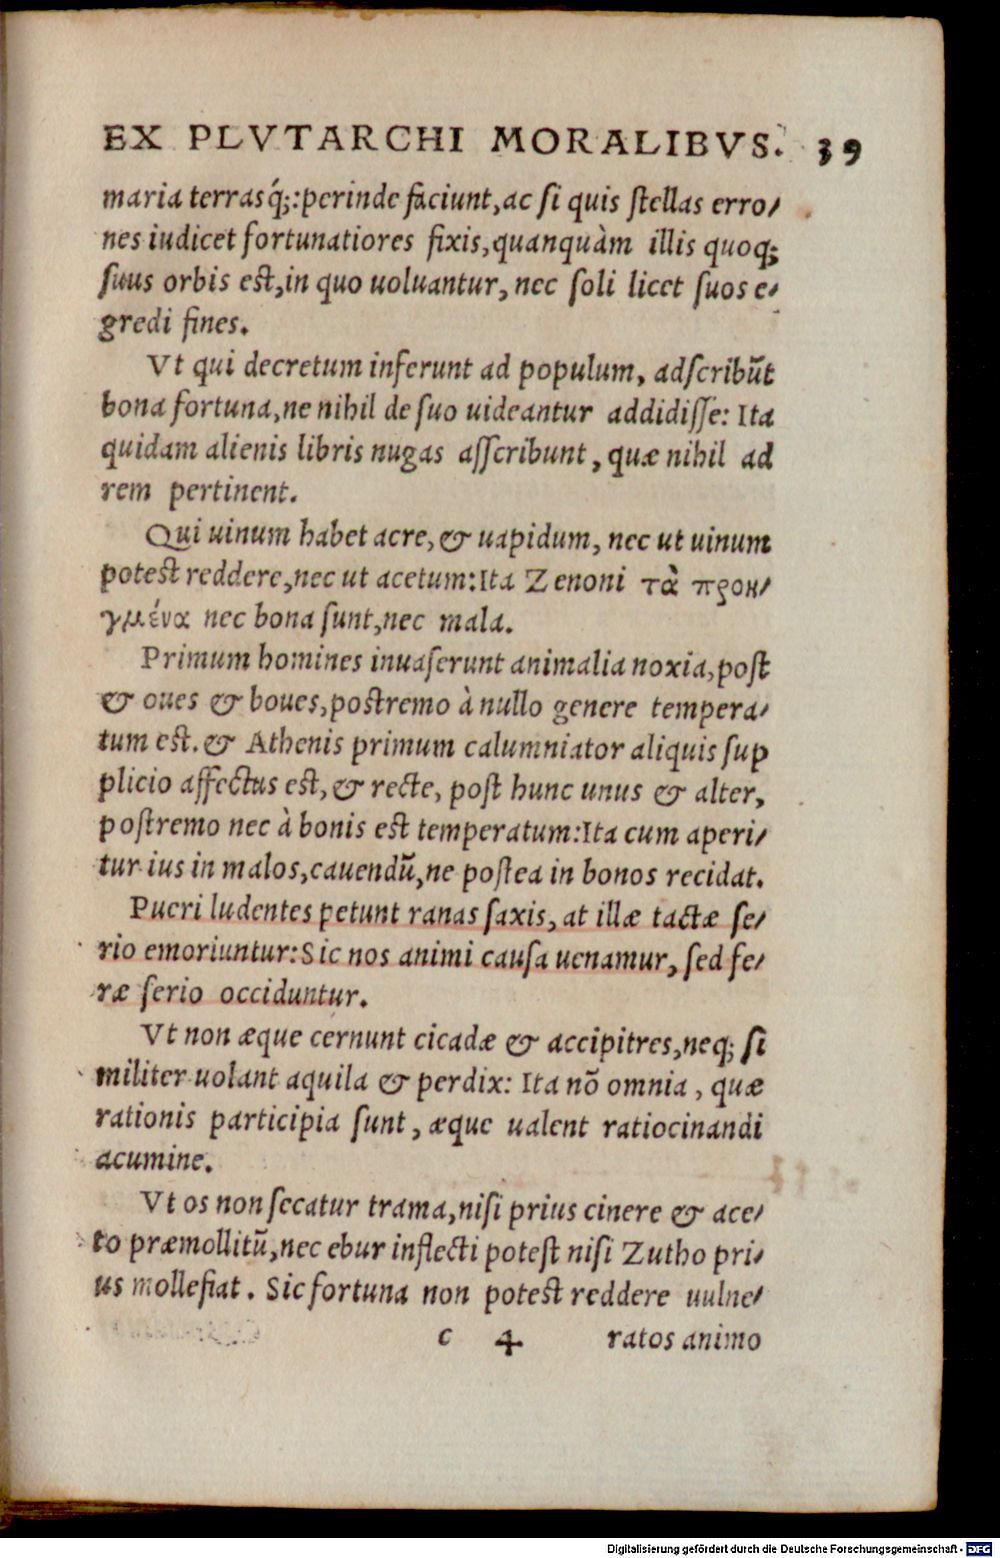 EX PLVTARCHI MORALIBVS. 39
maria terrasq́;:perinde faciunt,ac si quis stellas erro/
nes iudicet fortunatiores fixis,quanquàm illis quoq;
suus orbis est,in quo uoluantur, nec soli licet suos e/
gredi fines.
Vt qui decretum inferunt ad populum, adscribũt
bona fortuna,ne nihil de suo uideantur addidisse: Ita
quidam alienis libris nugas asscribunt, quæ nihil ad
rem pertinent.
Qui uinum habet acre, & uapidum, nec ut uinum
potest reddere,nec ut acetum:Ita Zenoni τὰ προη/
γμένα nec bona sunt,nec mala.
Primum homines inuaserunt animalia noxia,post
& oues & boues,postremo à nullo genere tempera/
tum est. & Athenis primum calumniator aliquis sup
plicio affectus est, & recte, post hunc unus & alter,
postremo nec à bonis est temperatum:Ita cum aperi/
tur ius in malos,cauendũ,ne postea in bonos recidat.
Pueri ludentes petunt ranas saxis, at illæ tactæ se/
rio emoriuntur:Sic nos animi causa uenamur, sed fe/
ræ serio occiduntur.
Vt non æque cernunt cicadæ & accipitres,neq; si
militer uolant aquila & perdix: Ita nõ omnia, quæ
rationis participia sunt, æque ualent ratiocinandi
acumine.
Vt os non secatur trama,nisi prius cinere & ace/
to præmollitũ,nec ebur inflecti potest nisi Zutho pri/
us mollefiat. Sic fortuna non potest reddere uulne/
c 4 ratos animo
Digitalisierung gefördert durch die Deutsche Forschungsgemeinschaft - DFG